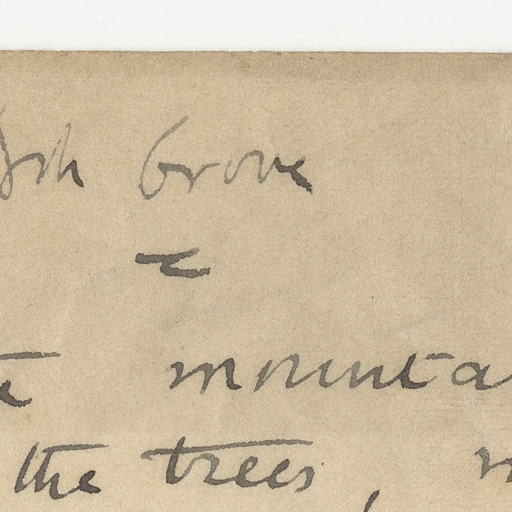 Grove
mounta
the trees,